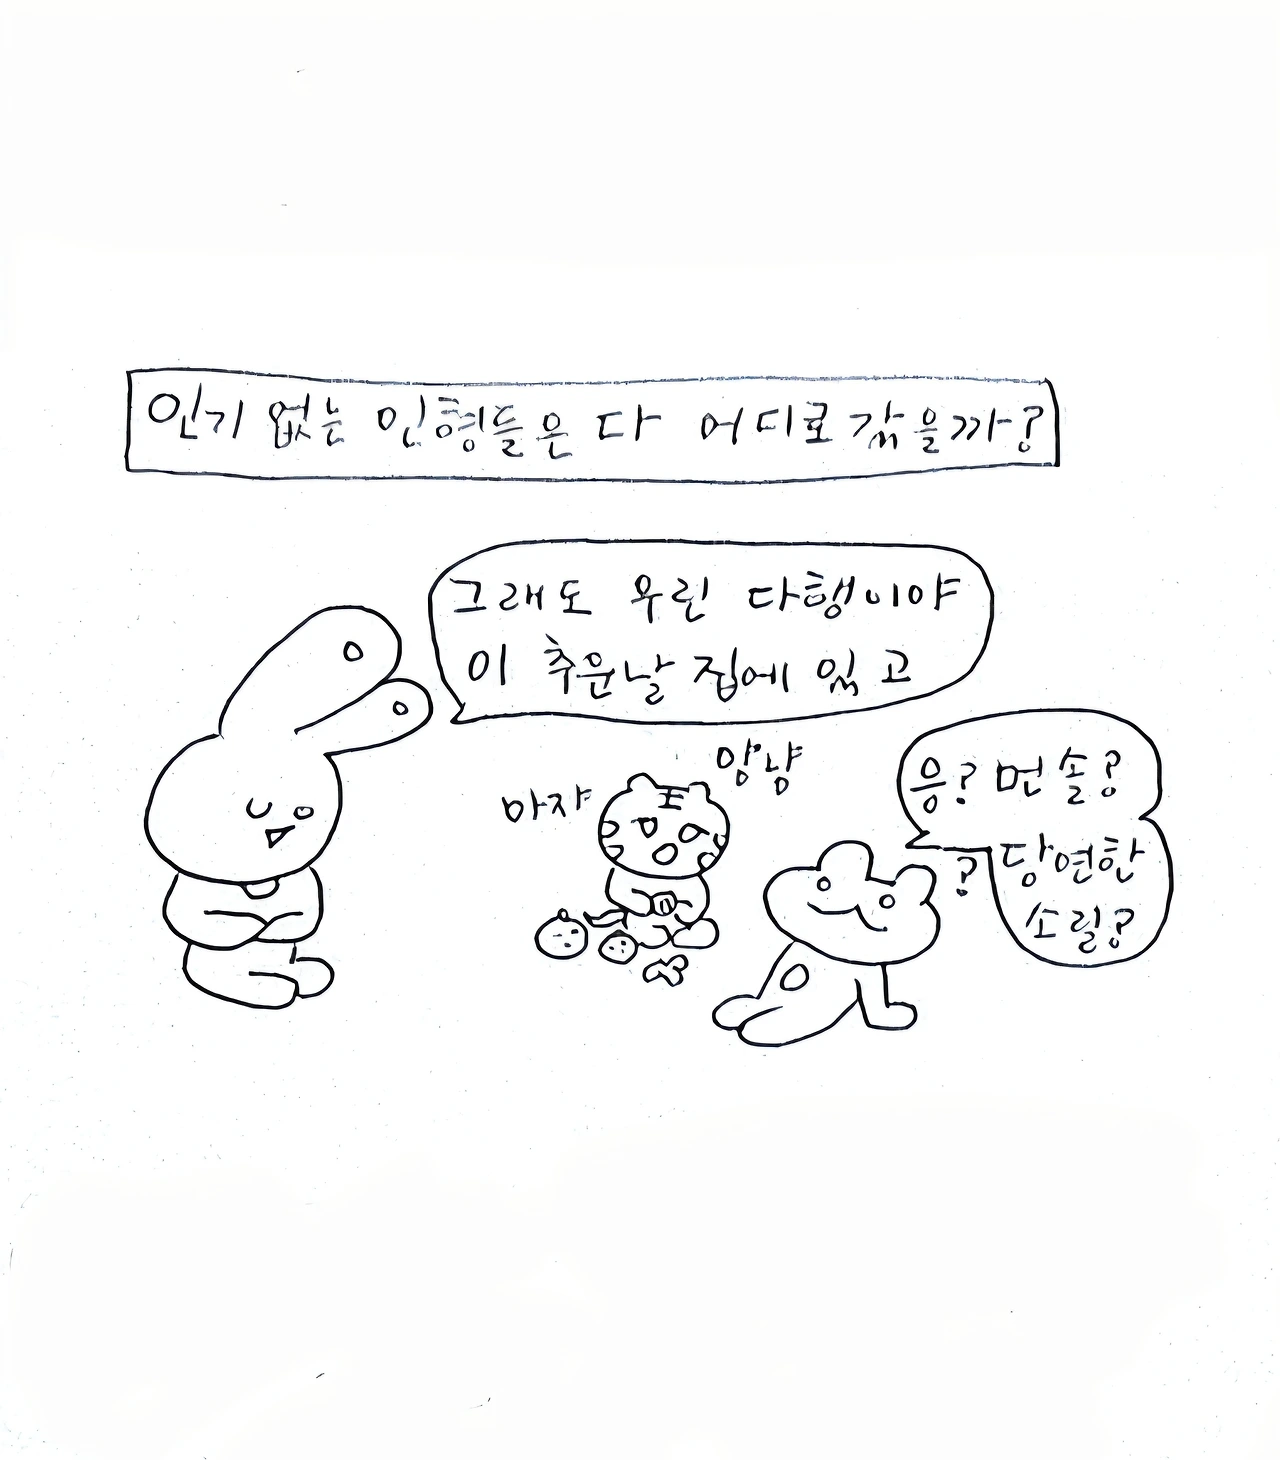 인기 없는 인형들은 다 어디로 갔을까?
그래도 우린 다행이야
이 추운날 집에 있고
마쟈
얌냠
응? 먼 솔?
?
당연한
소릴?